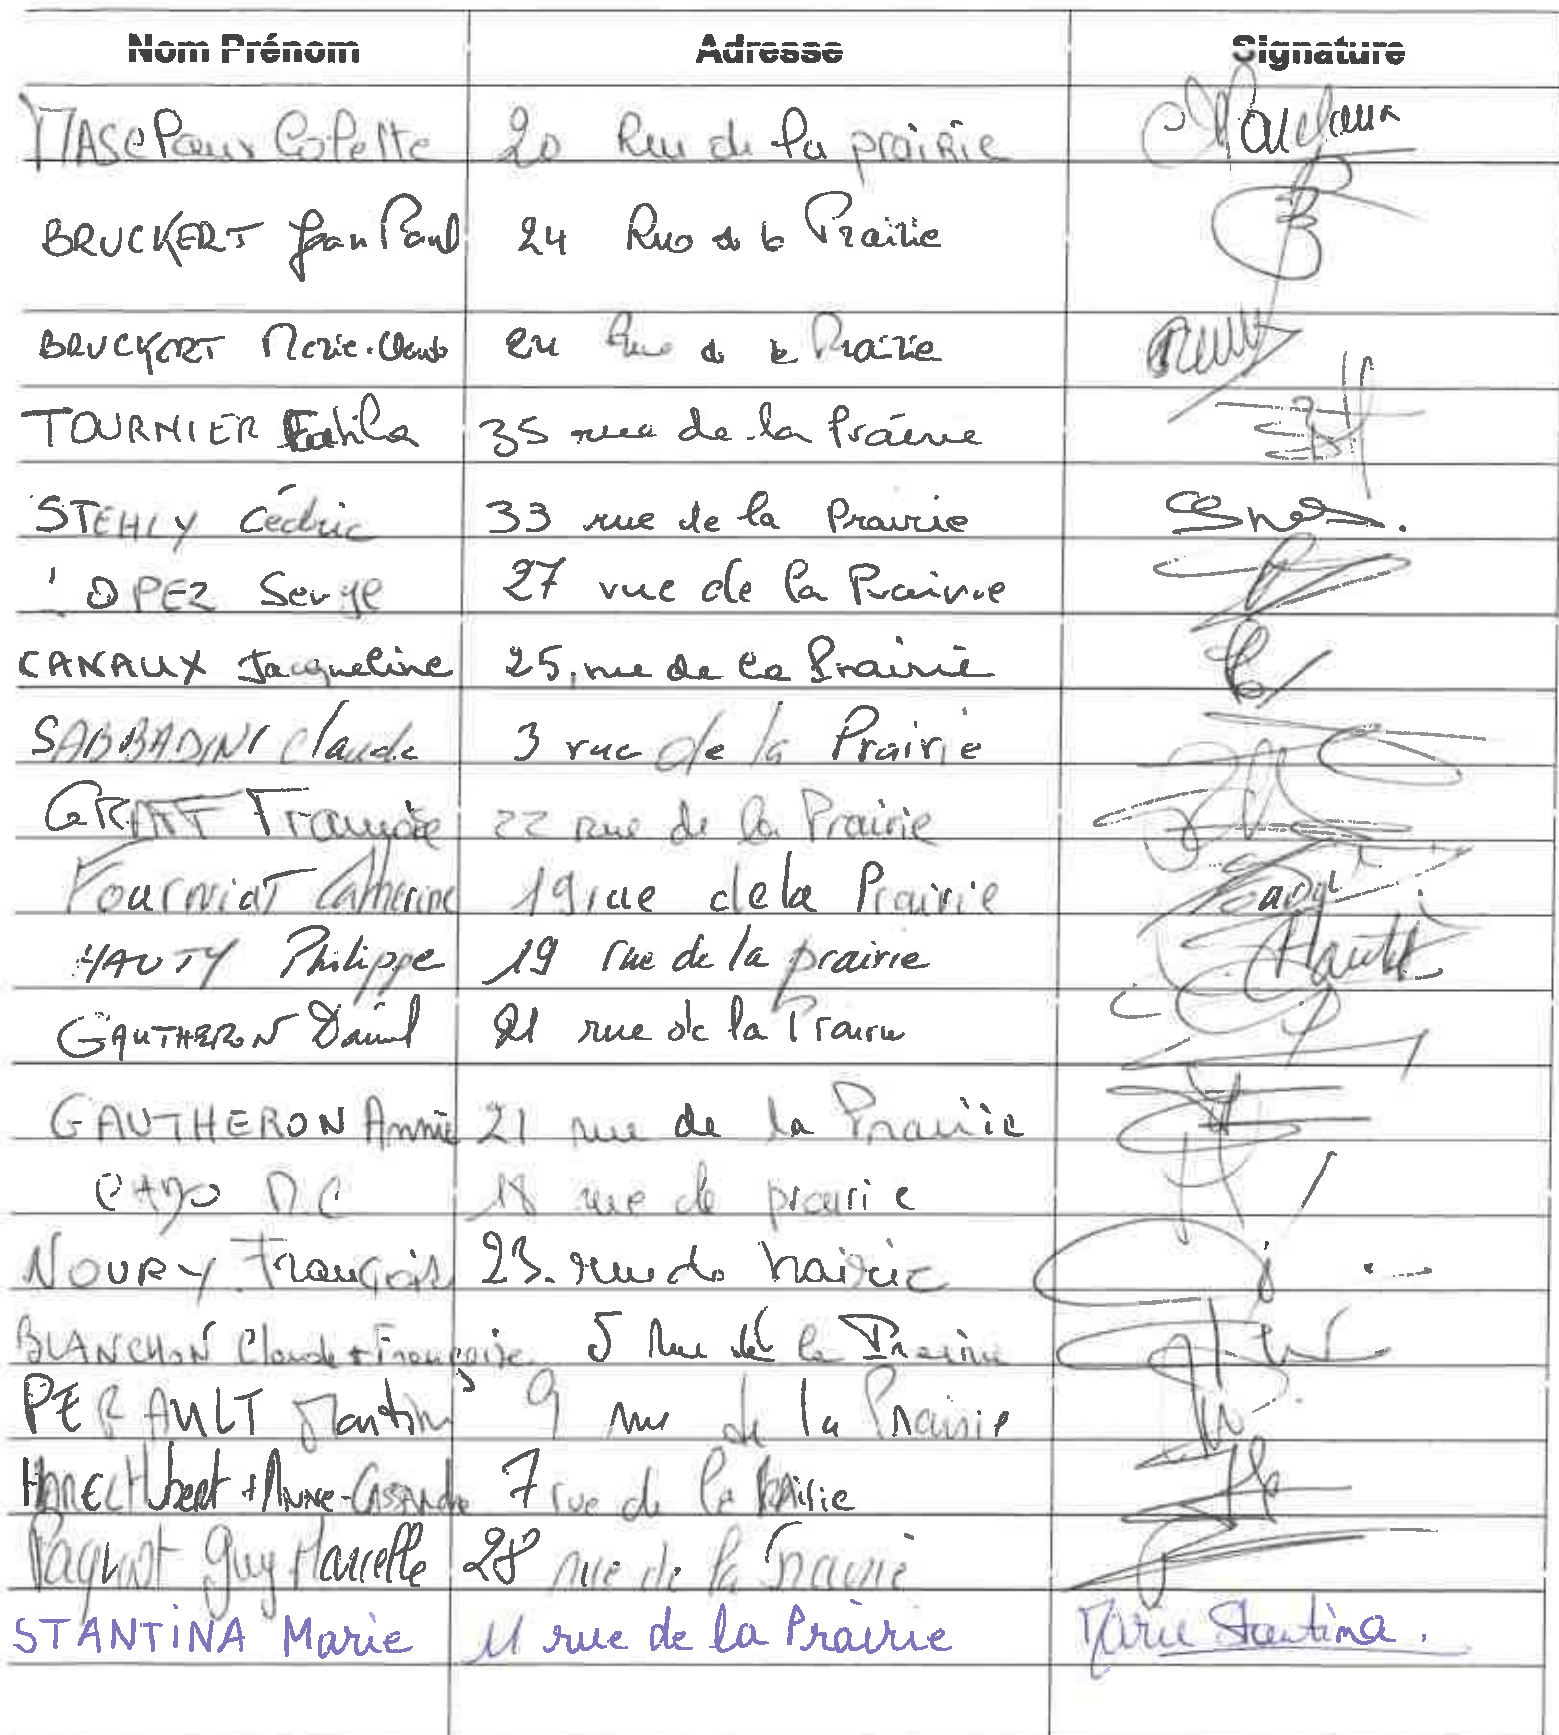 Nom Prénom Adresse Signature
Colette 20 Rue de la prairie
BRUCKERT Jean Paul 24 Rue de la Prairie
BRUCKERT Marie-Claude 24 Rue de la Prairie
TOURNIER 35 rue de la Prairie
STEHLY Cédric 33 rue de la Prairie
LOPEZ Serge 27 rue de la Prairie
CANAUX Jacqueline 25, rue de la Prairie
SABBADINI Claude 3 rue de la Prairie
Françoise 22 rue de la Prairie
Fourniat Catherine 19 rue de la Prairie
HAUTY Philippe 19 rue de la prairie
GAUTHERON Daniel 21 rue de la Prairie
GAUTHERON Annie 21 rue de la Prairie
18 rue de prairie
NOURY François 23. rue de Prairie
BLANCHON Claude + Françoise 5 Rue de la Prairie
PERAULT Martine 9 rue de la Prairie
Hubert + Anne-Cassandre 7 rue de la Prairie
Guy Marcelle 28 rue de la Prairie
STANTINA Marie 11 rue de la Prairie Marie Stantina.